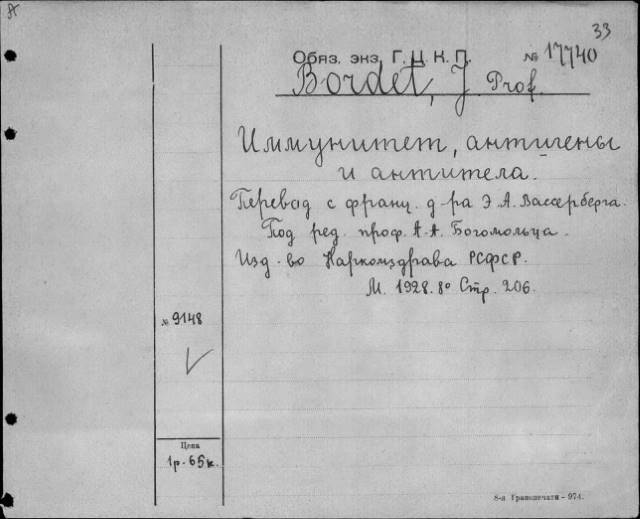 33
Обяз. экз. Г. Ц. К. П. № 17740
Bordet, J. Prof.
Иммунитет, антигены
и антитела.
Перевод с франц. д-ра Э. А. Вассерберга.
Под ред. проф. А. А. Богомольца.
Изд-во Наркомздрава РСФСР.
М. 1928. 8° Стр. 206.
№ 9148
Цена
1р.-65к.
8-я Гранпечати - 974.